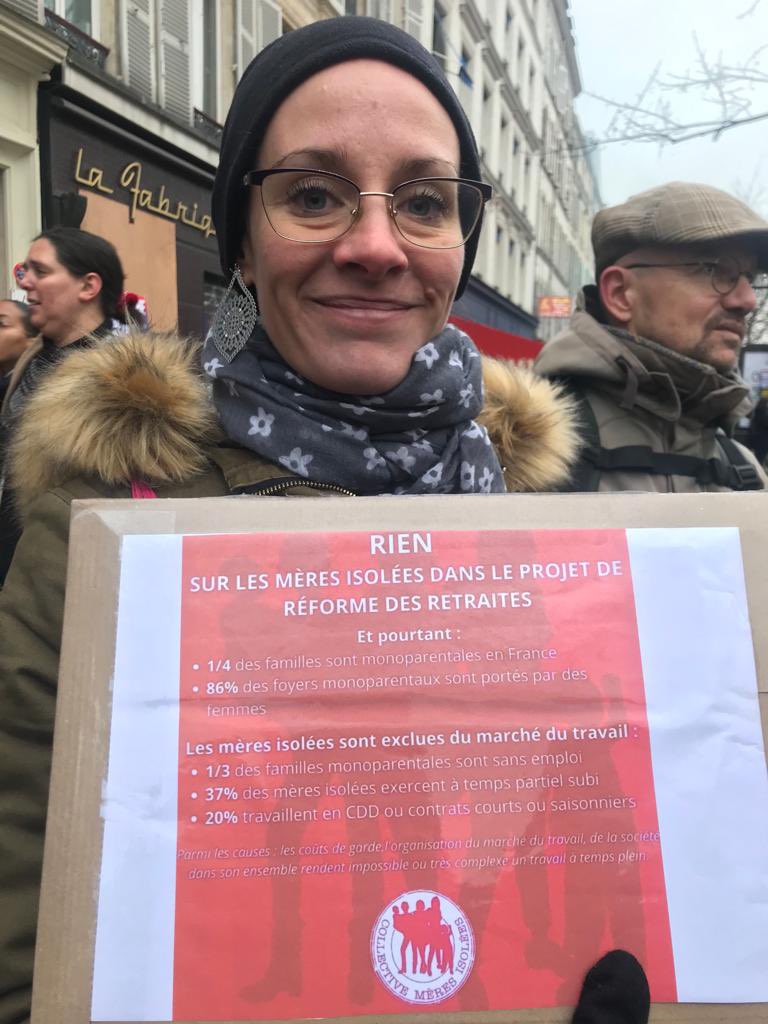 La Fabriq
RIEN
SUR LES MÈRES ISOLÉES DANS LE PROJET DE
RÉFORME DES RETRAITES
Et pourtant :
• 1/4 des familles sont monoparentales en France
• 86% des foyers monoparentaux sont portés par des
femmes
Les mères isolées sont exclues du marché du travail :
• 1/3 des familles monoparentales sont sans emploi
• 37% des mères isolées exercent à temps partiel subi
• 20% travaillent en CDD ou contrats courts ou saisonniers
Parmi les causes : les coûts de garde,l'organisation du marché du travail, de la société
dans son ensemble rendent impossible ou très complexe un travail à temps plein.
COLLECTIVE MÈRES ISOLÉES